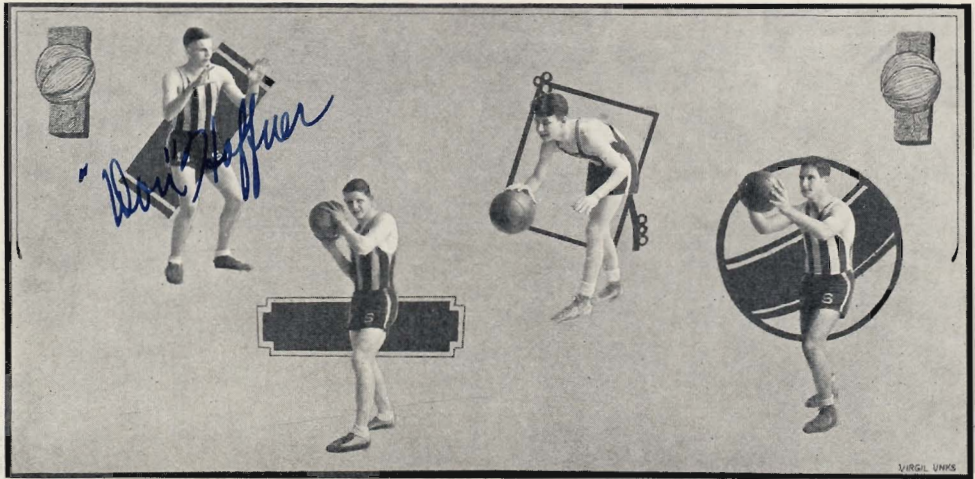 "Don" Hoffner
S
S
VIRGIL UNKS